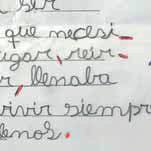 ser
que necesi-
ugar, reir
r, llenaba
vivir siempr
lenos.